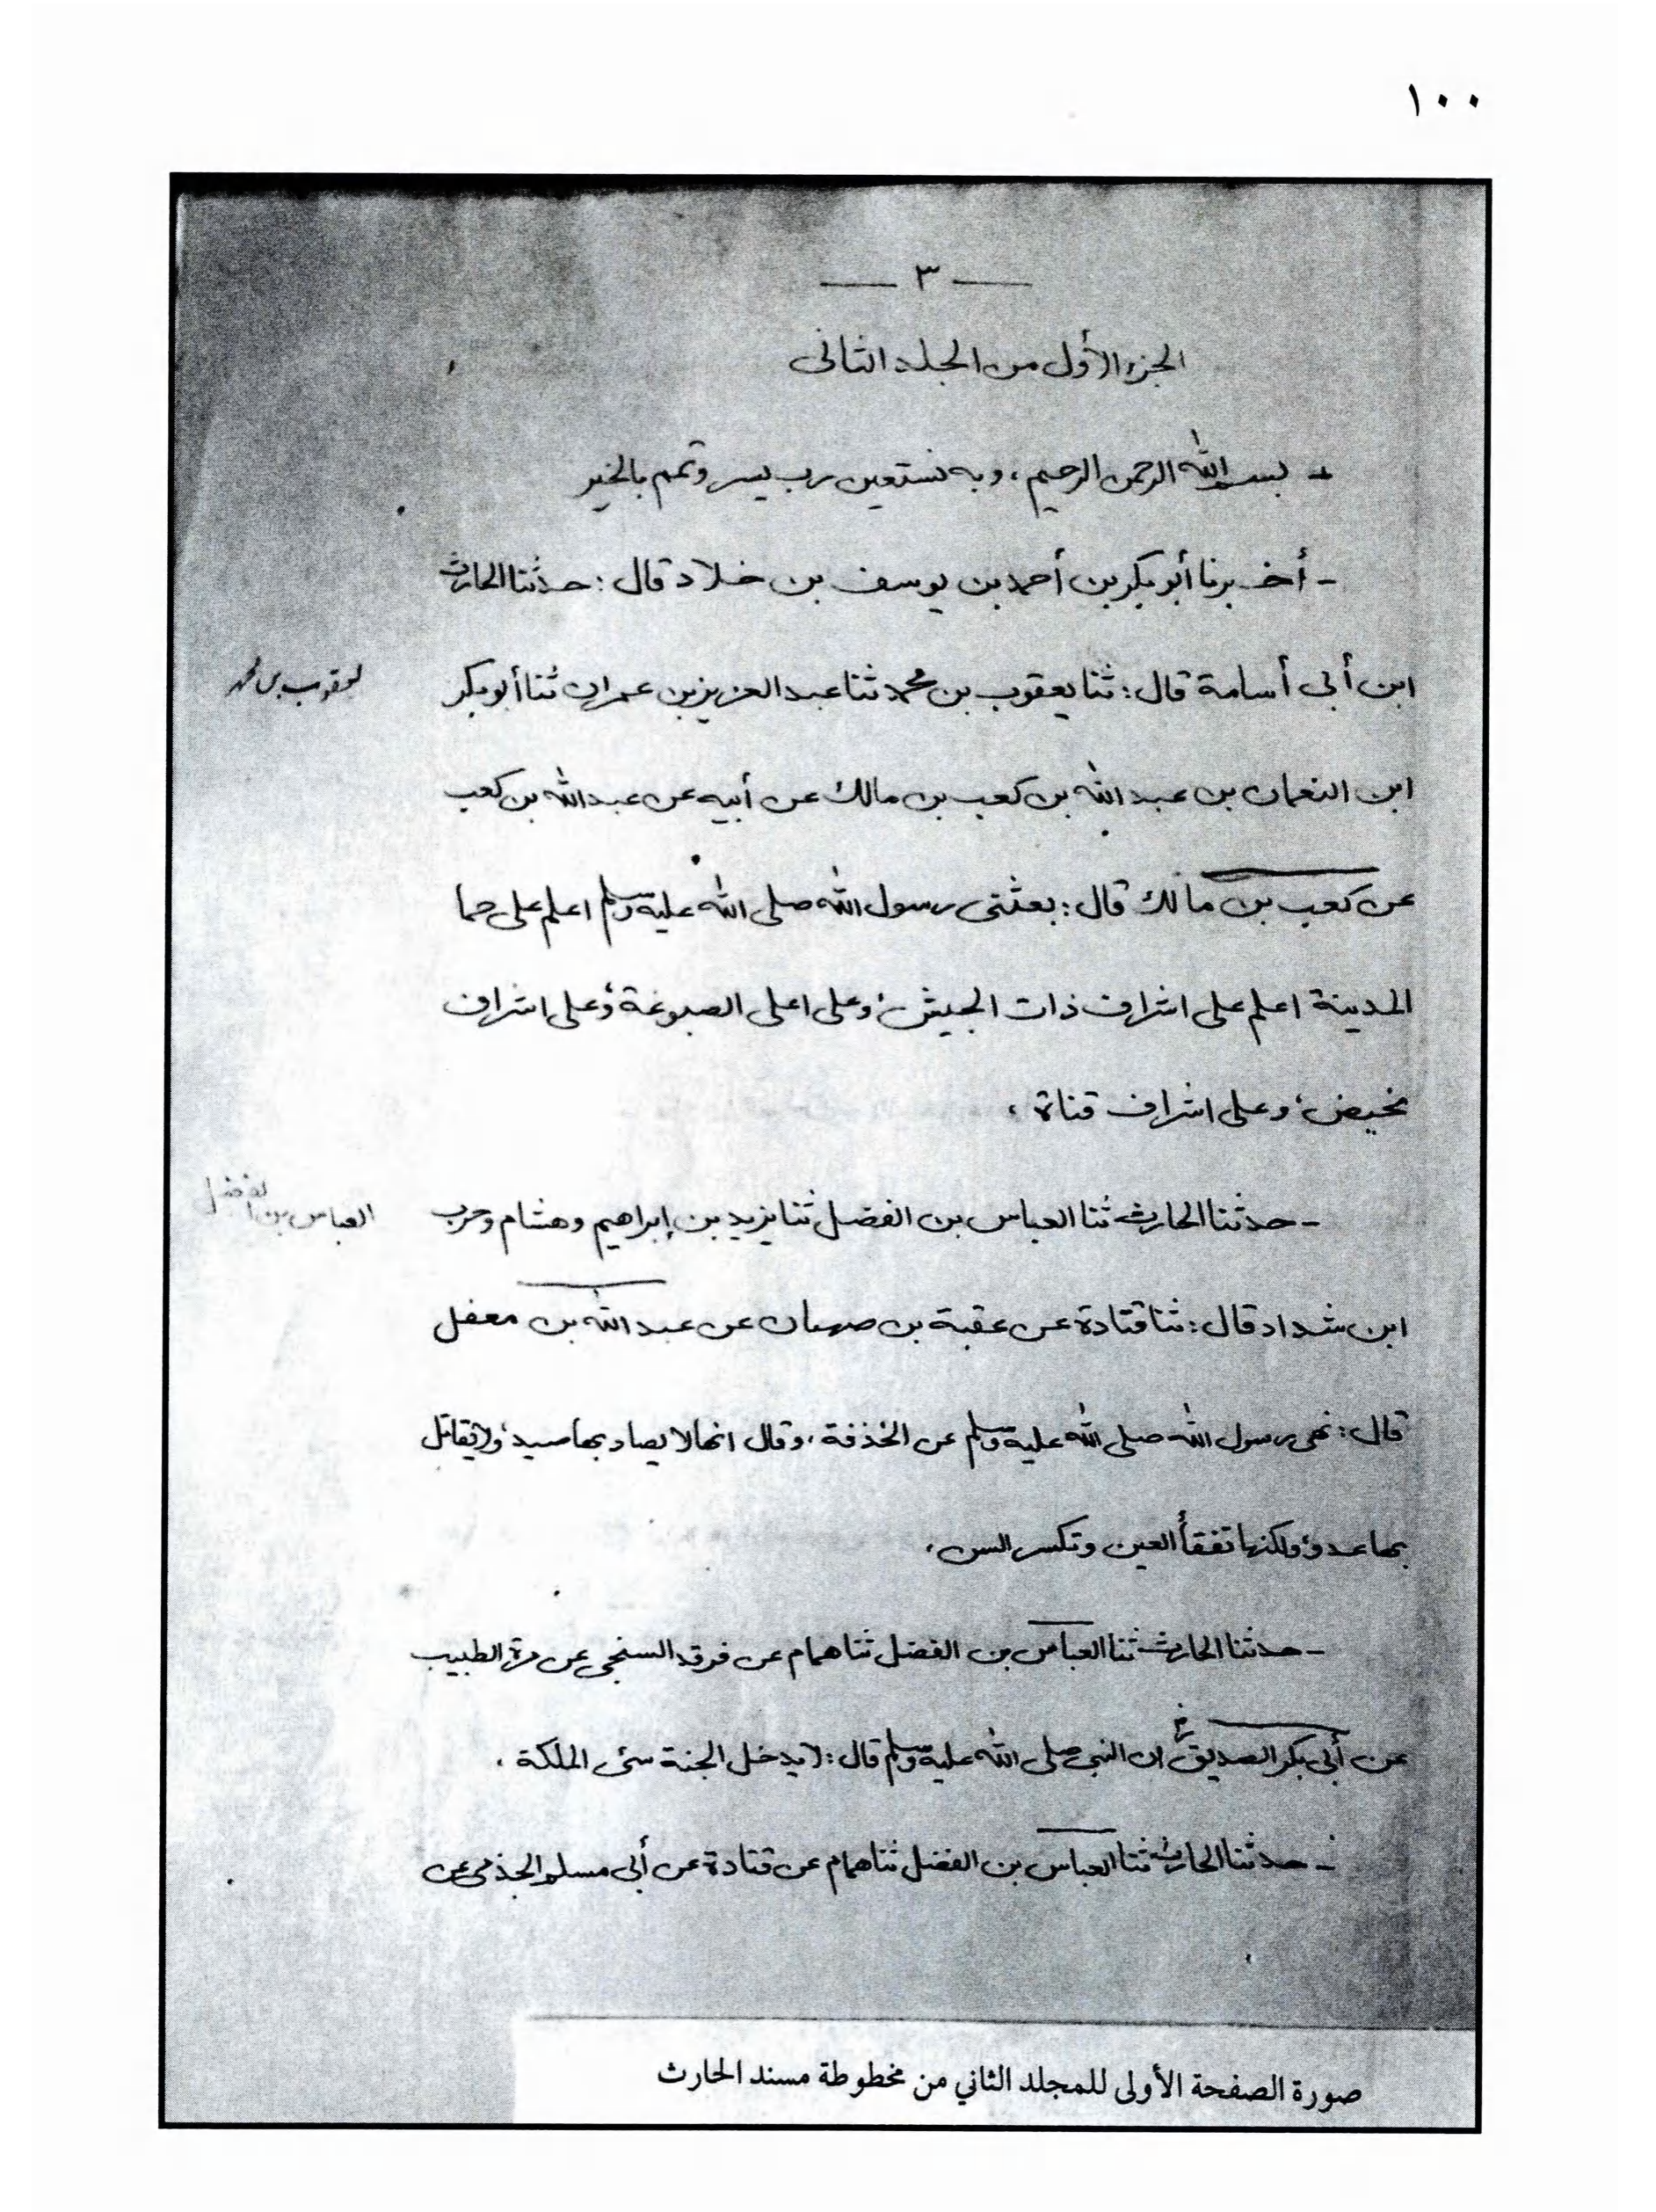 ١٠٠
— ٣ —
الجزء الأول من الجلد الثاني
- بسم الله الرحمن الرحيم، وبه نستعين رب يسر وتمم بالخير
- أخبرنا أبو بكر بن أحمد بن يوسف بن خلاد قال: حدثنا الحارث
ابن أبي أسامة قال: ثنا يعقوب بن محمد ثنا عبد العزيز بن عمران ثنا أبو بكر
يعقوب بن محمد
ابن النعمان بن عبد الله بن كعب بن مالك عن أبيه عن عبد الله بن كعب
عن كعب بن مالك قال: بعثني رسول الله صلى الله عليه وسلم اعلم على حما
المدينة اعلم على اشراف ذات الجيش، وعلى اعلى الصبوغة، وعلى اشراف
مخيض، وعلى اشراف قناة،
- حدثنا الحارث ثنا العباس بن الفضل ثنا يزيد بن إبراهيم وهشام وحرب
العباس بن الفضل
ابن شداد قال: ثنا قتادة عن عقبة بن صهبان عن عبد الله بن معفل
قال: نهى رسول الله صلى الله عليه وسلم عن الخذفة، وقال انها لا يصاد بها صيد، ولا يقاتل
بها عدو، ولكنها تفقأ العين وتكسر السن،
- حدثنا الحارث ثنا العباس بن الفضل ثنا همام عن فرقد السنجي عن مرة الطبيب
عن أبي بكر الصديق رض ان النبي صلى الله عليه وسلم قال: لا يدخل الجنة سئ الملكة،
- حدثنا الحارث ثنا العباس بن الفضل ثنا همام عن قتادة عن أبي مسلم الجذمي عن
صورة الصفحة الأولى للمجلد الثاني من مخطوطة مسند الحارث